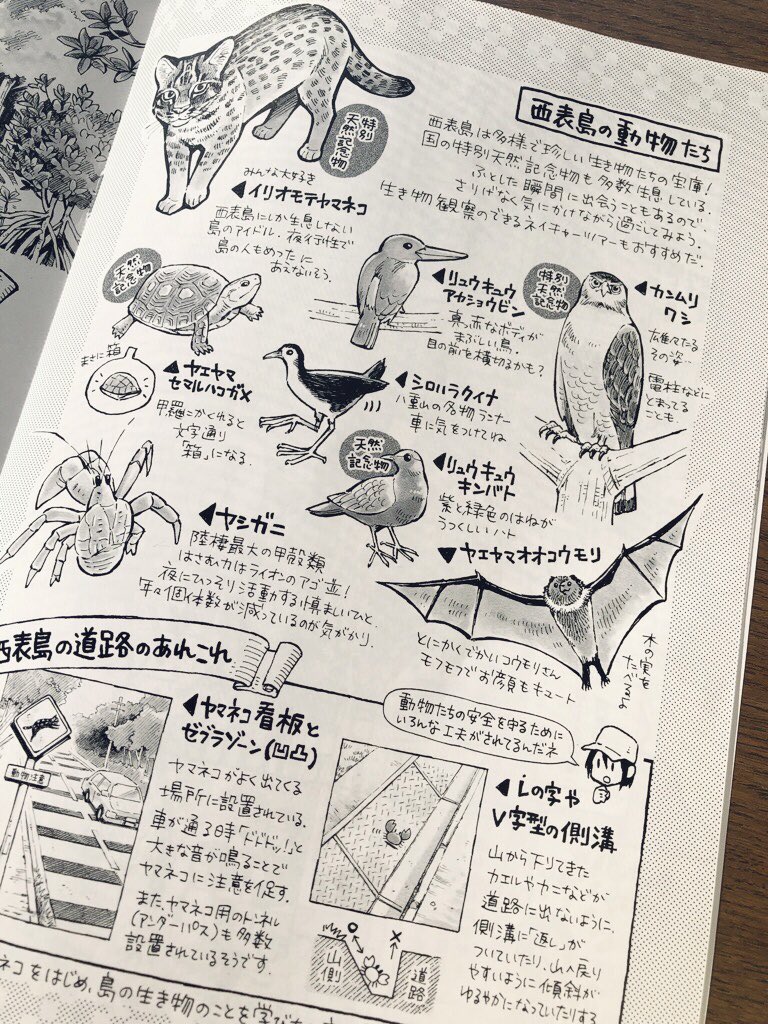 西表島の動物たち
西表島は多様で珍しい生き物たちの宝庫!
国の特別天然記念物も多数生息している。
ふとした瞬間に出会うこともあるので、
さりげなく気にかけながら過ごしてみよう。
生き物観察のできるネイチャーツアーもおすすめだ。
特別
天然記念物
みんな大好き
◀イリオモテヤマネコ
西表島にしか生息しない
島のアイドル。夜行性で
島の人もめったに
あえないそう。
◀リュウキュウ
アカショウビン
真っ赤なボディが
まぶしい鳥。
目の前を横切るかも?
特別
天然記念物
◀カンムリ
ワシ
雄々たる
その姿…
電柱などに
とまってる
ことも
天然記念物
まさに箱
▲ヤエヤマ
セマルハコガメ
甲羅にかくれると
文字通り
「箱」になる。
◀シロハラクイナ
八重山の名物ランナー
車に気をつけてね
天然
記念物
◀リュウキュウ
キンバト
紫と緑色のはねが
うつくしいハト
◀ヤシガニ
陸棲最大の甲殻類
はさむ力はライオンのアゴ並!
夜にひっそり活動する慎ましいひと。
年々個体数が減っているのが気がかり。
▼ヤエヤマオオコウモリ
とにかくでかいコウモリさん
モフモフでお顔もキュート
木の実を
たべるよ
西表島の道路のあれこれ
動物注意
◀ヤマネコ看板と
ゼブラゾーン(凹凸)
ヤマネコがよく出てくる
場所に設置されている。
車が通る時「ドドドッ!」と
大きな音が鳴ることで
ヤマネコに注意を促す。
また、ヤマネコ用のトンネル
(アンダーパス)も多数
設置されているそうです。
動物たちの安全を守るために
いろんな工夫がされてるんだネ
◀Lの字や
V字型の側溝
山から下りてきた
カエルやカニなどが
道路に出ないように、
側溝に「返し」が
ついていたり、山へ戻り
やすいように傾斜が
ゆるやかになっていたりする
山側
道路
ネコをはじめ、島の生き物のことを学び